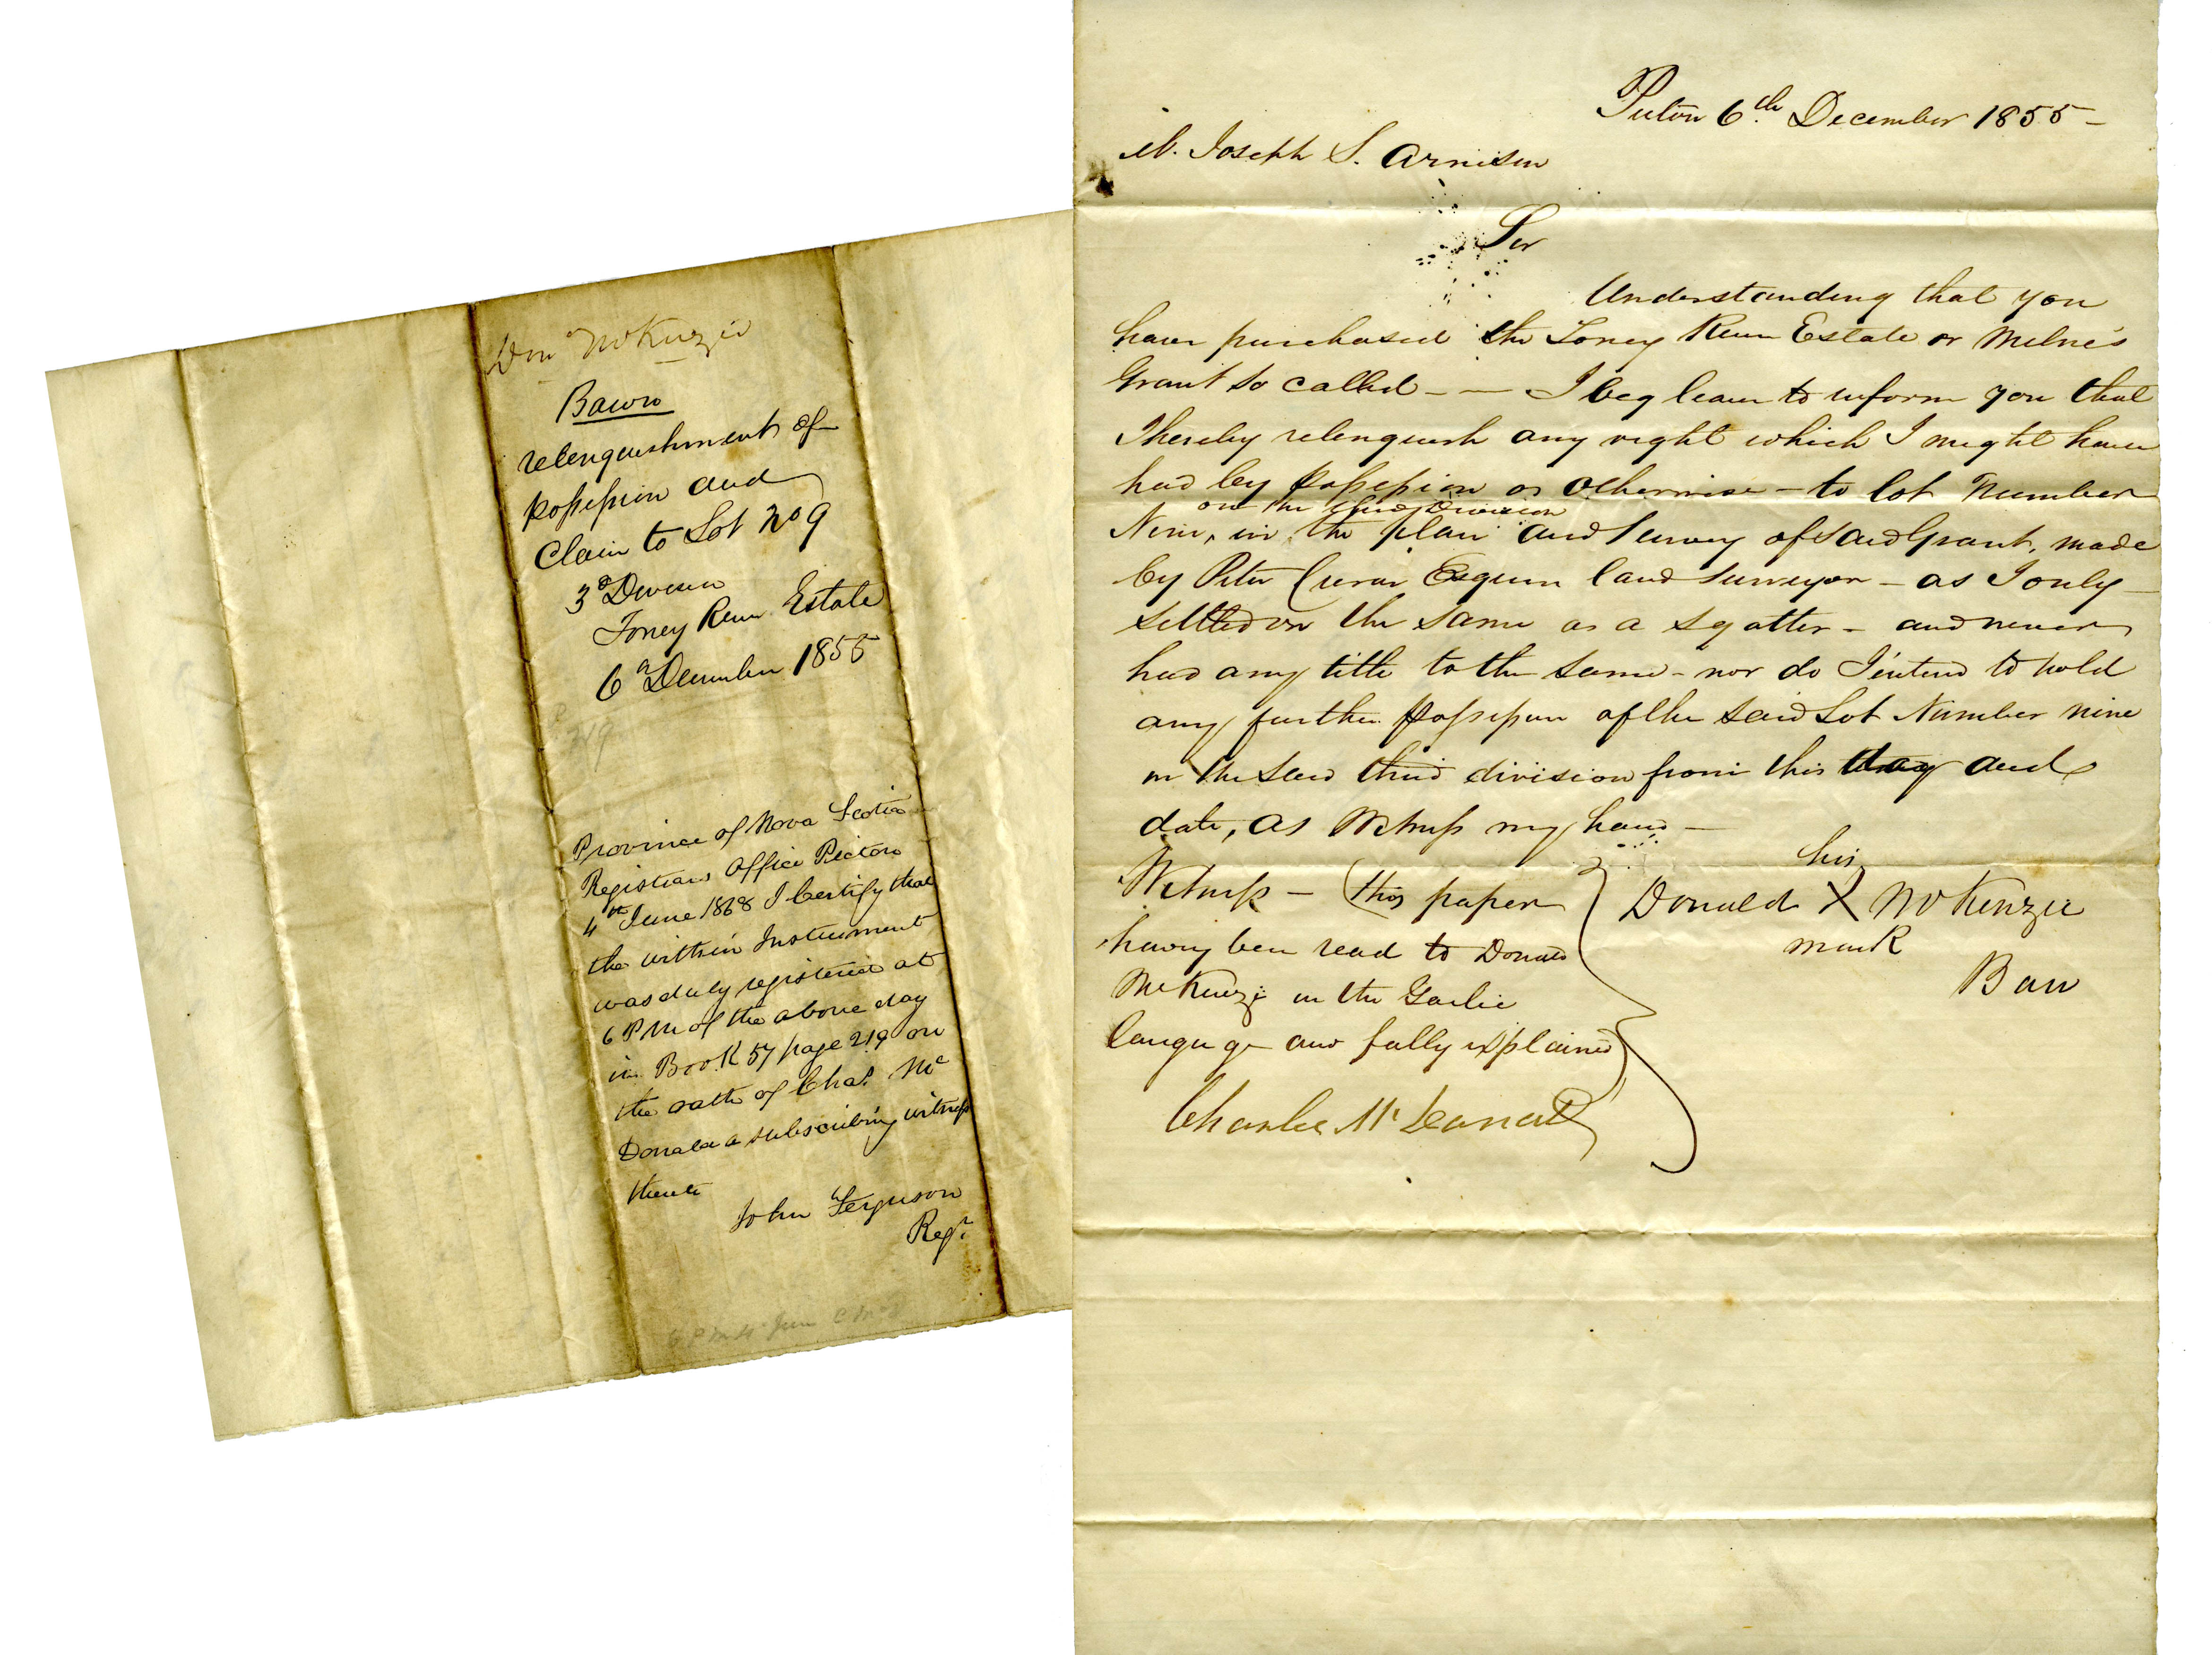 Don McKenzie
Bawn
relenquishment of
possession and
Claim to Lot No 9
3d Division
Toney River Estate
6th December 1855
219
Province of Nova Scotia
Registrars Office Pictou
4th June 1868 I Certify that
the within Instrument
was duly registered at
6 PM of the above day
in Book 57 page 219 on
the oath of Chas. Mc
Donald a subscribing witness
thereto
John Ferguson
Regr.
6 P M 4 June C McD
Pictou 6th December 1855 –
Mr. Joseph S. Arnison
Sir
Understanding that you
have purchased the Toney River Estate or Melne's
Grant so called – — I beg leave to inform you that
I hereby relenquish any right which I might have
had by possession or otherwise – to lot Number
on the third Division
Nine, in the plan and Survey of said Grant, made
by Peter Crerar Esquire land Surveyor – as I only
settled on the same as a sqatter – and never
had any title to the same – nor do I intend to hold
any further possession of the said Lot Number nine
in the said third division from this day and
date, as Witness my hand —
Witness – (this paper
having ben read to Donald
McKenzie in the Gaelic
languge and fully explained)
Charles McDonald
his
Donald X McKenzie
mark
Baw